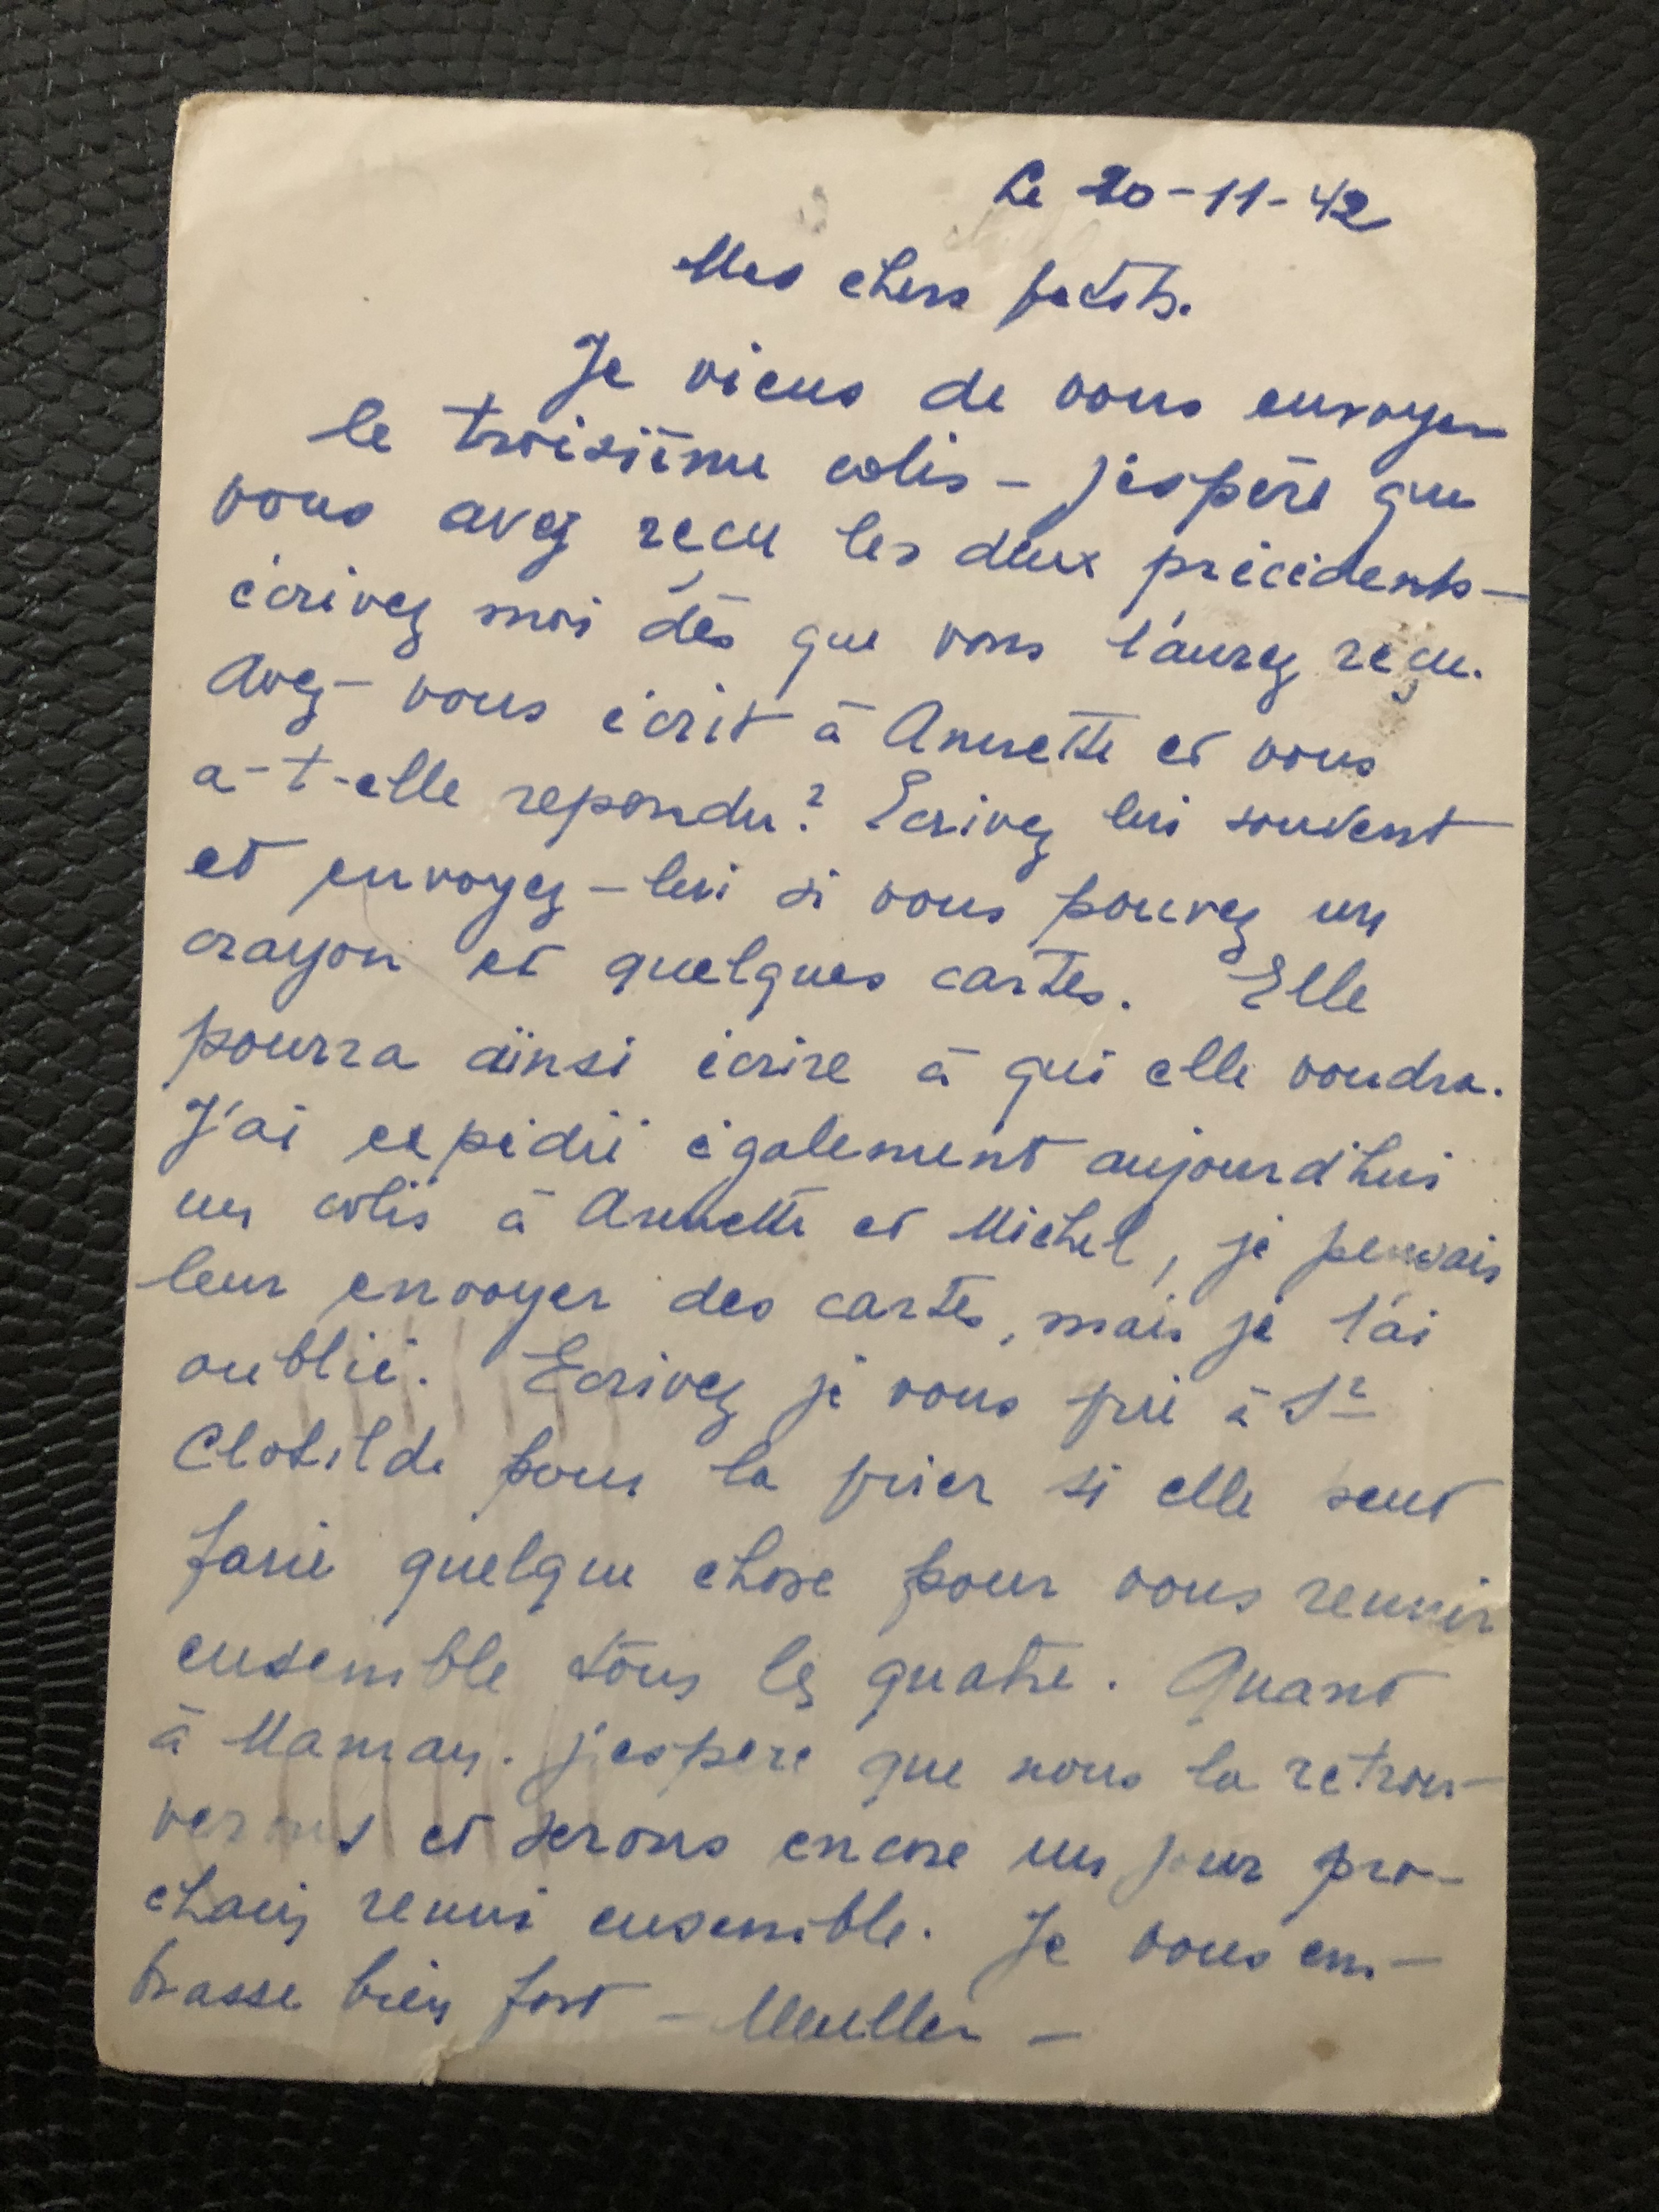 Le 20-11-42
Mes chers petits.
Je viens de vous envoyer
le troisième colis - j'espère que
vous avez reçu les deux précédents -
écrivez moi dès que vous l'aurez reçu.
Avez-vous écrit à Annette et vous
a-t-elle repondu? Ecrivez lui souvent
et envoyez-lui si vous pouvez un
crayon et quelques cartes. Elle
pourra ainsi écrire à qui elle voudra.
J'ai expédié également aujourd'hui
un colis à Annette et Michel, je pensais
leur envoyer des cartes, mais je l'ai
oublié. Ecrivez je vous prie à Sr
Clotilde pour la prier si elle peut
farie quelque chose pour vous reunir
ensemble tous les quatre. Quant
à Maman. j'espere que nous la retrou-
verons et serons encore un jour pro-
chain reuni ensemble. Je vous em-
brasse bien fort - Muller -